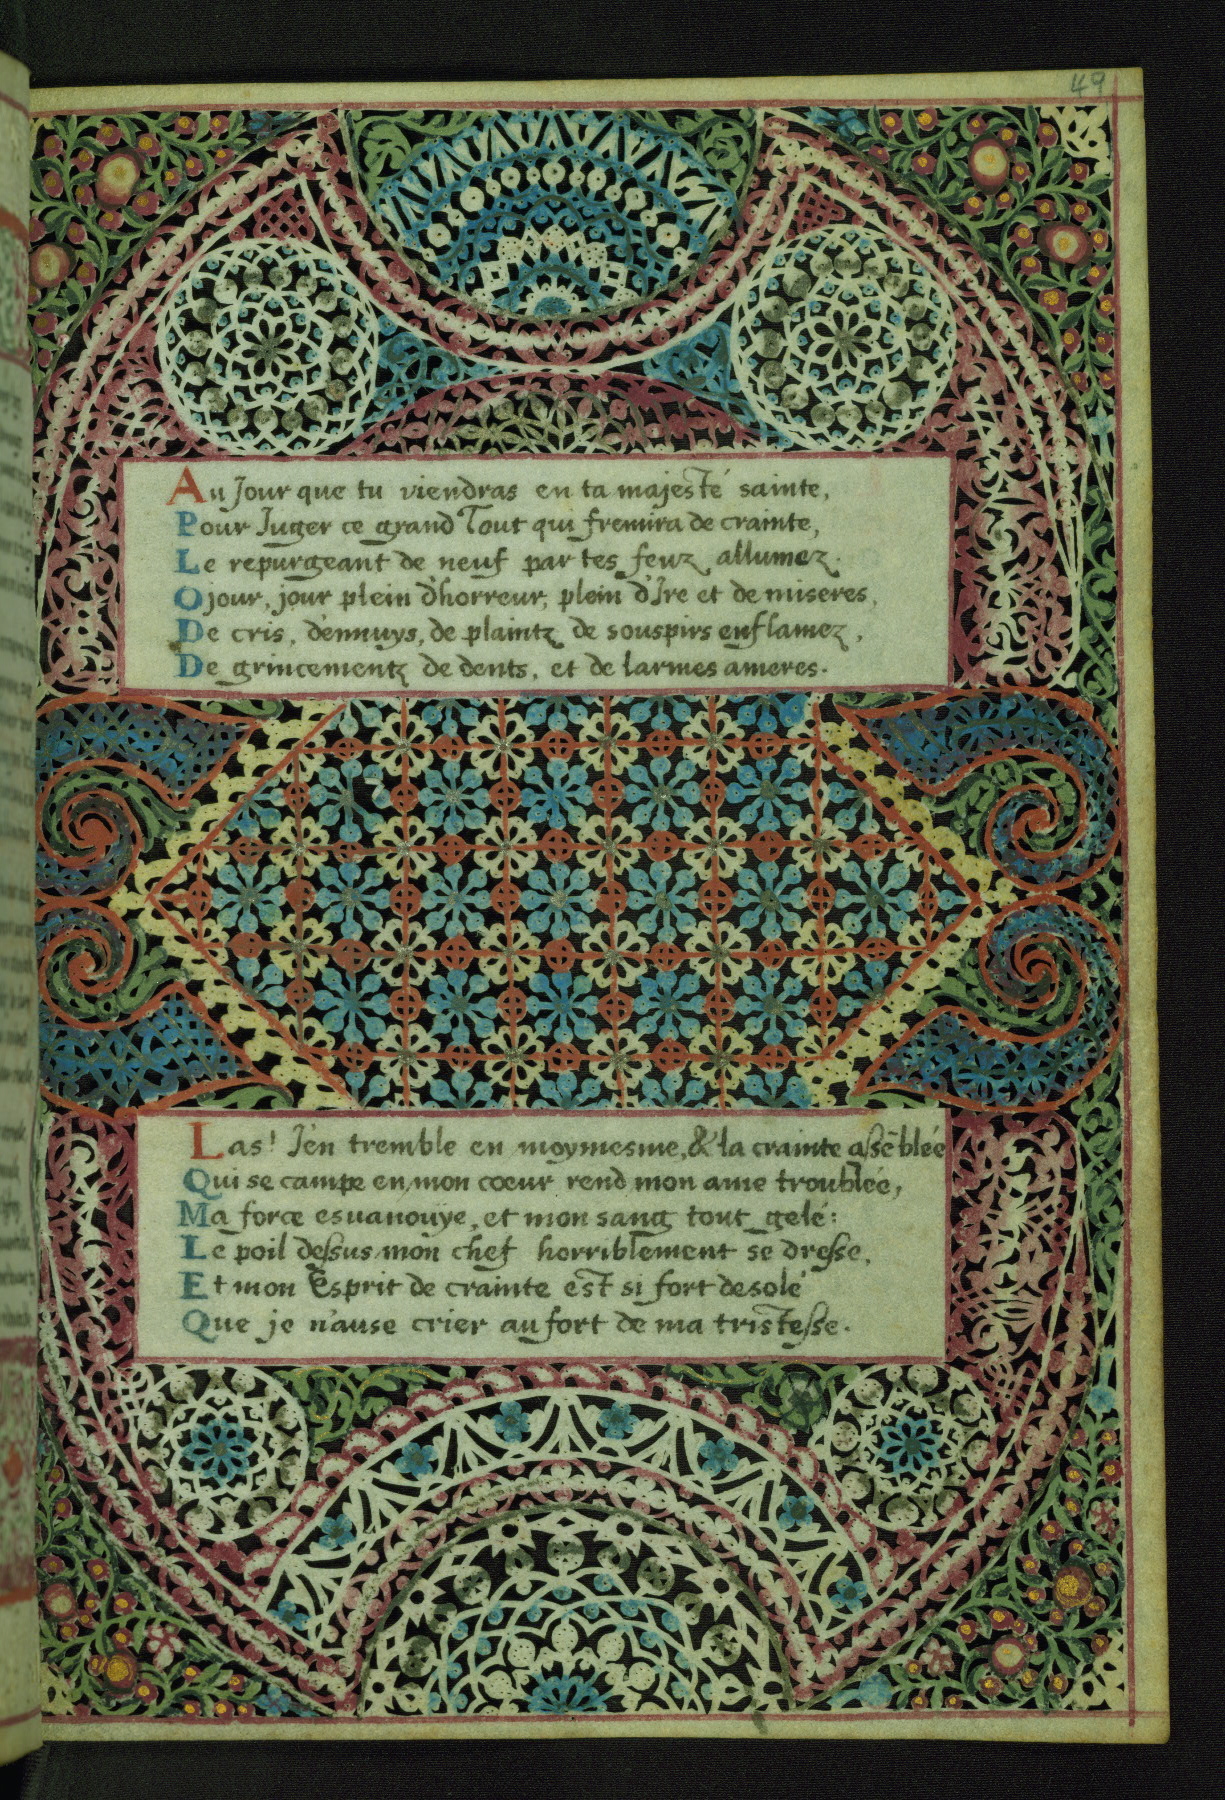 49
Au Jour que tu viendras en ta majesté sainte,
Pour Juger ce grand Tout qui fremira de crainte,
Le repurgeant de neuf par tes feuz allumez.
O jour, jour plein d'horreur, plein d'Ire et de miseres,
De cris, d'ennuys, de plaintz de souspirs enflamez,
De grincementz de dents, et de larmes ameres.
Las! J'en tremble en moymesme, & la crainte assẽblée
Qui se campe en mon coeur rend mon ame troublée,
Ma force esvanouÿe, et mon sang tout gelé:
Le poil dessus mon chef horriblement se dresse,
Et mon Esprit de crainte est si fort desolé
Que je n'ause crier au fort de ma tristesse.